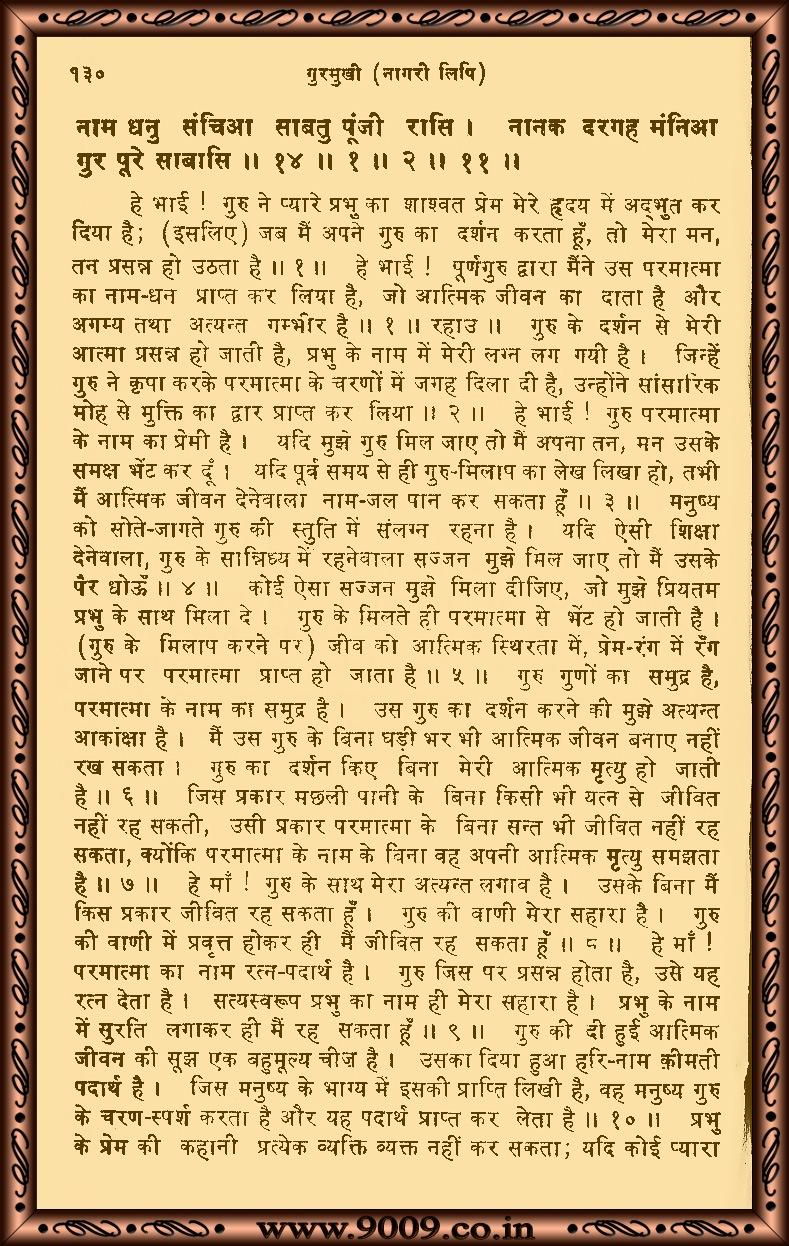 १३० गुरमुखी (नागरी लिपि)
नाम धनु संचिआ साबतु पूंजी रासि । नानक दरगह मंनिआ
गुर पूरे साबासि ॥ १४ ॥ १ ॥ २ ॥ ११ ॥
हे भाई ! गुरु ने प्यारे प्रभु का शाश्वत प्रेम मेरे हृदय में अद्भुत कर
दिया है; (इसलिए) जब मैं अपने गुरु का दर्शन करता हूँ, तो मेरा मन,
तन प्रसन्न हो उठता है ॥ १ ॥ हे भाई ! पूर्णगुरु द्वारा मैंने उस परमात्मा
का नाम-धन प्राप्त कर लिया है, जो आत्मिक जीवन का दाता है और
अगम्य तथा अत्यन्त गम्भीर है ॥ १ ॥ रहाउ ॥ गुरु के दर्शन से मेरी
आत्मा प्रसन्न हो जाती है, प्रभु के नाम में मेरी लग्न लग गयी है । जिन्हें
गुरु ने कृपा करके परमात्मा के चरणों में जगह दिला दी है, उन्होंने सांसारिक
मोह से मुक्ति का द्वार प्राप्त कर लिया ॥ २ ॥ हे भाई ! गुरु परमात्मा
के नाम का प्रेमी है । यदि मुझे गुरु मिल जाए तो मैं अपना तन, मन उसके
समक्ष भेंट कर दूँ । यदि पूर्व समय से ही गुरु-मिलाप का लेख लिखा हो, तभी
मैं आत्मिक जीवन देनेवाला नाम-जल पान कर सकता हूँ ॥ ३ ॥ मनुष्य
को सोते-जागते गुरु की स्तुति में संलग्न रहना है । यदि ऐसी शिक्षा
देनेवाला, गुरु के सान्निध्य में रहनेवाला सज्जन मुझे मिल जाए तो मैं उसके
पैर धोऊँ ॥ ४ ॥ कोई ऐसा सज्जन मुझे मिला दीजिए, जो मुझे प्रियतम
प्रभु के साथ मिला दे । गुरु के मिलते ही परमात्मा से भेंट हो जाती है ।
(गुरु के मिलाप करने पर) जीव को आत्मिक स्थिरता में, प्रेम-रंग में रँग
जाने पर परमात्मा प्राप्त हो जाता है ॥ ५ ॥ गुरु गुणों का समुद्र है,
परमात्मा के नाम का समुद्र है । उस गुरु का दर्शन करने की मुझे अत्यन्त
आकांक्षा है । मैं उस गुरु के बिना घड़ी भर भी आत्मिक जीवन बनाए नहीं
रख सकता । गुरु का दर्शन किए बिना मेरी आत्मिक मृत्यु हो जाती
है ॥ ६ ॥ जिस प्रकार मछली पानी के बिना किसी भी यत्न से जीवित
नहीं रह सकती, उसी प्रकार परमात्मा के बिना सन्त भी जीवित नहीं रह
सकता, क्योंकि परमात्मा के नाम के बिना वह अपनी आत्मिक मृत्यु समझता
है ॥ ७ ॥ हे माँ ! गुरु के साथ मेरा अत्यन्त लगाव है । उसके बिना मैं
किस प्रकार जीवित रह सकता हूँ । गुरु की वाणी मेरा सहारा है । गुरु
की वाणी में प्रवृत्त होकर ही मैं जीवित रह सकता हूँ ॥ ८ ॥ हे माँ !
परमात्मा का नाम रत्न-पदार्थ है । गुरु जिस पर प्रसन्न होता है, उसे यह
रत्न देता है । सत्यस्वरूप प्रभु का नाम ही मेरा सहारा है । प्रभु के नाम
में सुरति लगाकर ही मैं रह सकता हूँ ॥ ९ ॥ गुरु की दी हुई आत्मिक
जीवन की सूझ एक बहुमूल्य चीज़ है । उसका दिया हुआ हरि-नाम क़ीमती
पदार्थ है । जिस मनुष्य के भाग्य में इसकी प्राप्ति लिखी है, वह मनुष्य गुरु
के चरण-स्पर्श करता है और यह पदार्थ प्राप्त कर लेता है ॥ १० ॥ प्रभु
के प्रेम की कहानी प्रत्येक व्यक्ति व्यक्त नहीं कर सकता; यदि कोई प्यारा
www.9009.co.in